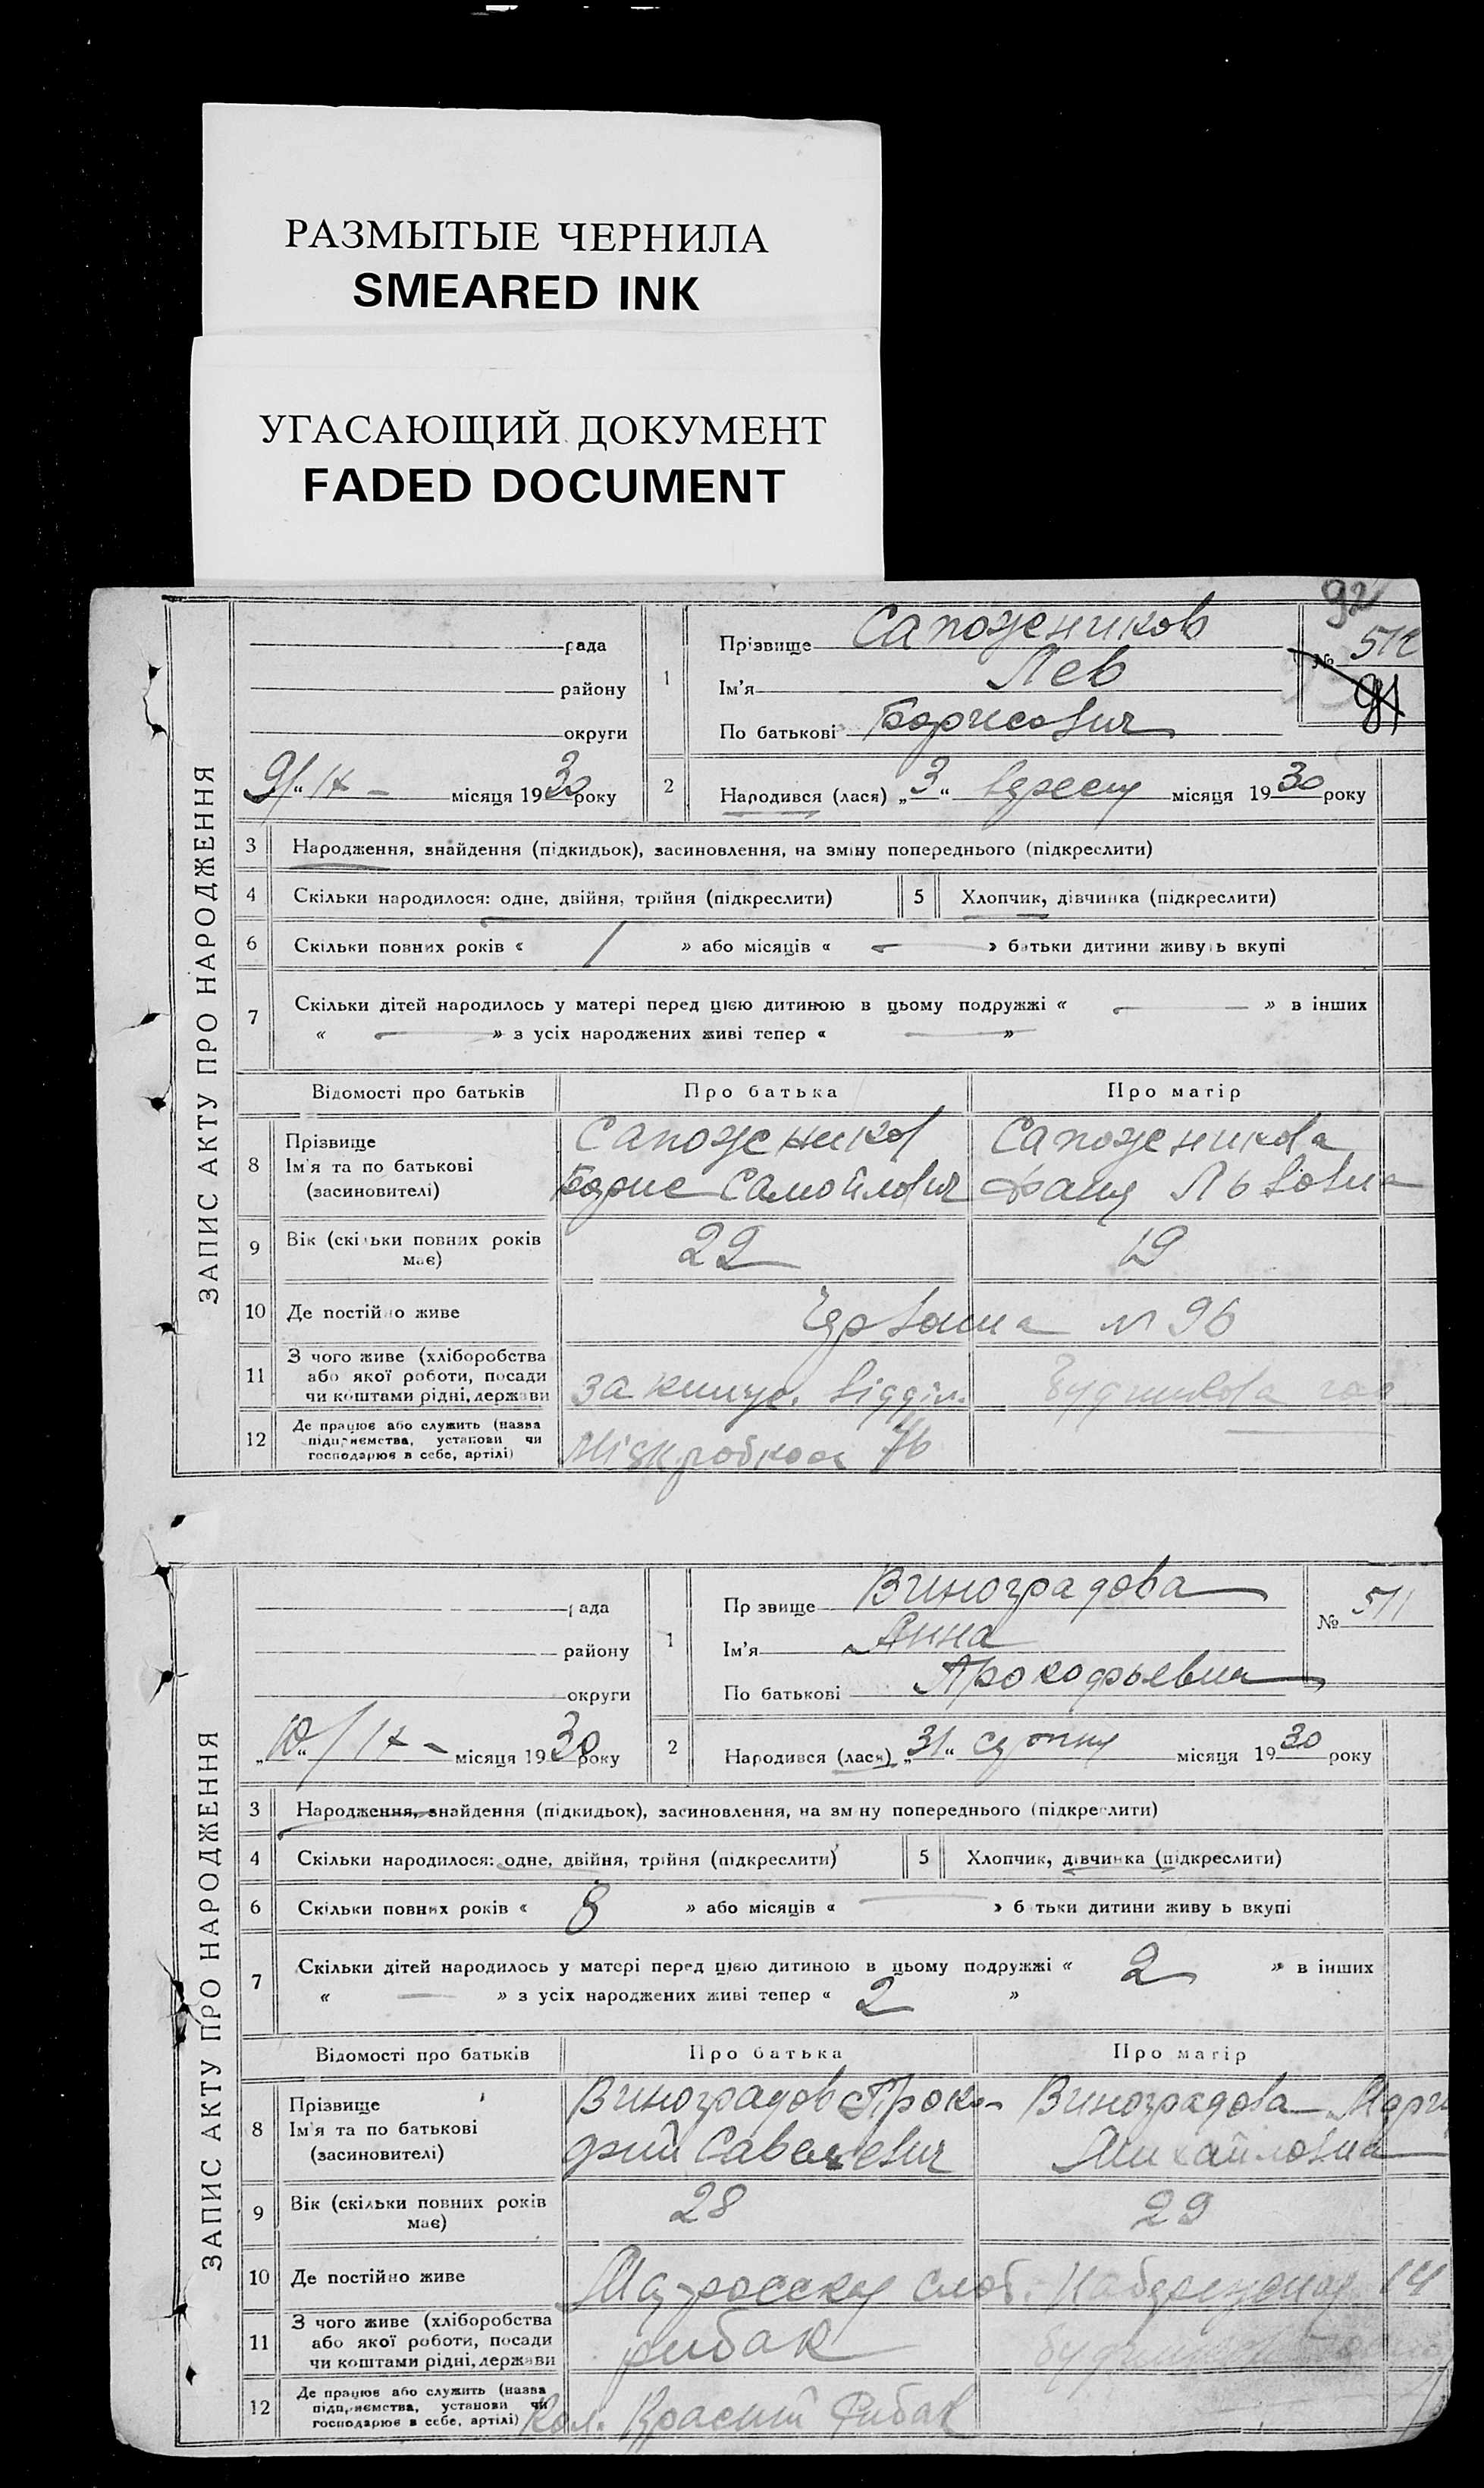 РАЗМЫТЫЕ ЧЕРНИЛА
SMEARED INK
УГАСАЮЩИЙ ДОКУМЕНТ
FADED DOCUMENT
92
ЗАПИС АКТУ ПРО НАРОДЖЕННЯ
рада
району
округи
9/IX – місяця 1930 року
1
Прізвище Сапожников
Ім'я Лев
По батькові Борисович
№ 512
91
2
Народився (лася) „3“ вересня місяця 1930 року
3 Народження, знайдення (підкидьок), засиновлення, на зміну попереднього (підкреслити)
4 Скільки народилося: одне, двійня, трійня (підкреслити)
5 Хлопчик, дівчинка (підкреслити)
6 Скільки повних років « 1 » або місяців « — » батьки дитини живуть вкупі
7 Скільки дітей народилось у матері перед цією дитиною в цьому подружжі « — » в інших
« — » з усіх народжених живі тепер « — »
Відомості про батьків Про батька Про матір
8 Прізвище
Ім'я та по батькові
(засиновителі)
Сапожников
Борис Самойлович
Сапожникова
Фаня Львовна
9 Вік (скільки повних років
має)
22
19
10 Де постійно живе
Червона № 96
11 З чого живе (хліборобства
або якої роботи, посади
чи коштами рідні, держави
відділ.
12 Де працює або служить (назва
підприємства, установи чи
господарює в себе, артілі)
ЗАПИС АКТУ ПРО НАРОДЖЕННЯ
рада
району
округи
„10“/IX – місяця 1930 року
1
Прізвище Виноградова
Ім'я Анна
По батькові Прокофьевна
№ 511
2
Народився (лася) „31“ серпня місяця 1930 року
3 Народження, знайдення (підкидьок), засиновлення, на зміну попереднього (підкреслити)
4 Скільки народилося: одне, двійня, трійня (підкреслити)
5 Хлопчик, дівчинка (підкреслити)
6 Скільки повних років « 8 » або місяців « — » батьки дитини живуть вкупі
7 Скільки дітей народилось у матері перед цією дитиною в цьому подружжі « 2 » в інших
« — » з усіх народжених живі тепер « 2 »
Відомості про батьків Про батька Про матір
8 Прізвище
Ім'я та по батькові
(засиновителі)
Виноградов Проко-
фий Савелевич
Виноградова
Михайловна
9 Вік (скільки повних років
має)
28
29
10 Де постійно живе
слоб. Набережная 14
11 З чого живе (хліборобства
або якої роботи, посади
чи коштами рідні, держави
рибак
12 Де працює або служить (назва
підприємства, установи чи
господарює в себе, артілі)
Кол. Красний Рибак